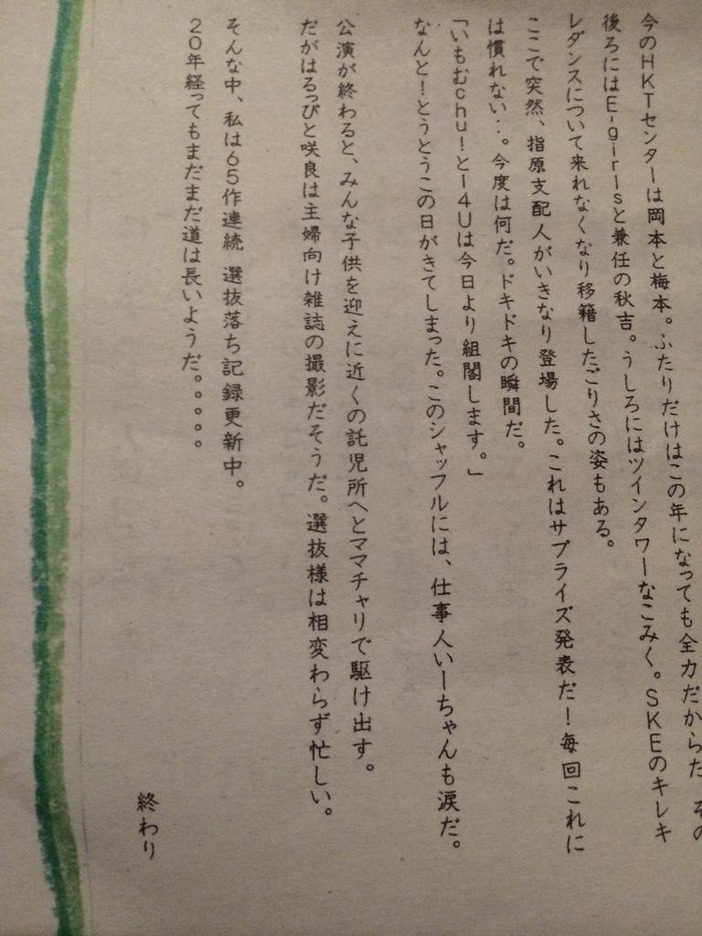 今のHKTセンターは岡本と梅本。ふたりだけはこの年になっても全力だからた その
後ろにはE-girlsと兼任の秋吉。うしろにはツインタワーなこみく。SKEのキレキ
レダンスについて来れなくなり移籍したごりさの姿もある。
ここで突然、指原支配人がいきなり登場した。これはサプライズ発表だ！毎回これに
は慣れない…。今度は何だ。ドキドキの瞬間だ。
「いもむchu！と14Uは今日より組閣します。」
なんと！とうとうこの日がきてしまった。このシャッフルには、仕事人いーちゃんも涙だ。
公演が終わると、みんな子供を迎えに近くの託児所へとママチャリで駆け出す。
だがはるっぴと咲良は主婦向け雑誌の撮影だそうだ。選抜様は相変わらず忙しい。
そんな中、私は65作連続 選抜落ち記録更新中。
20年経ってもまだまだ道は長いようだ。。。。。
終わり